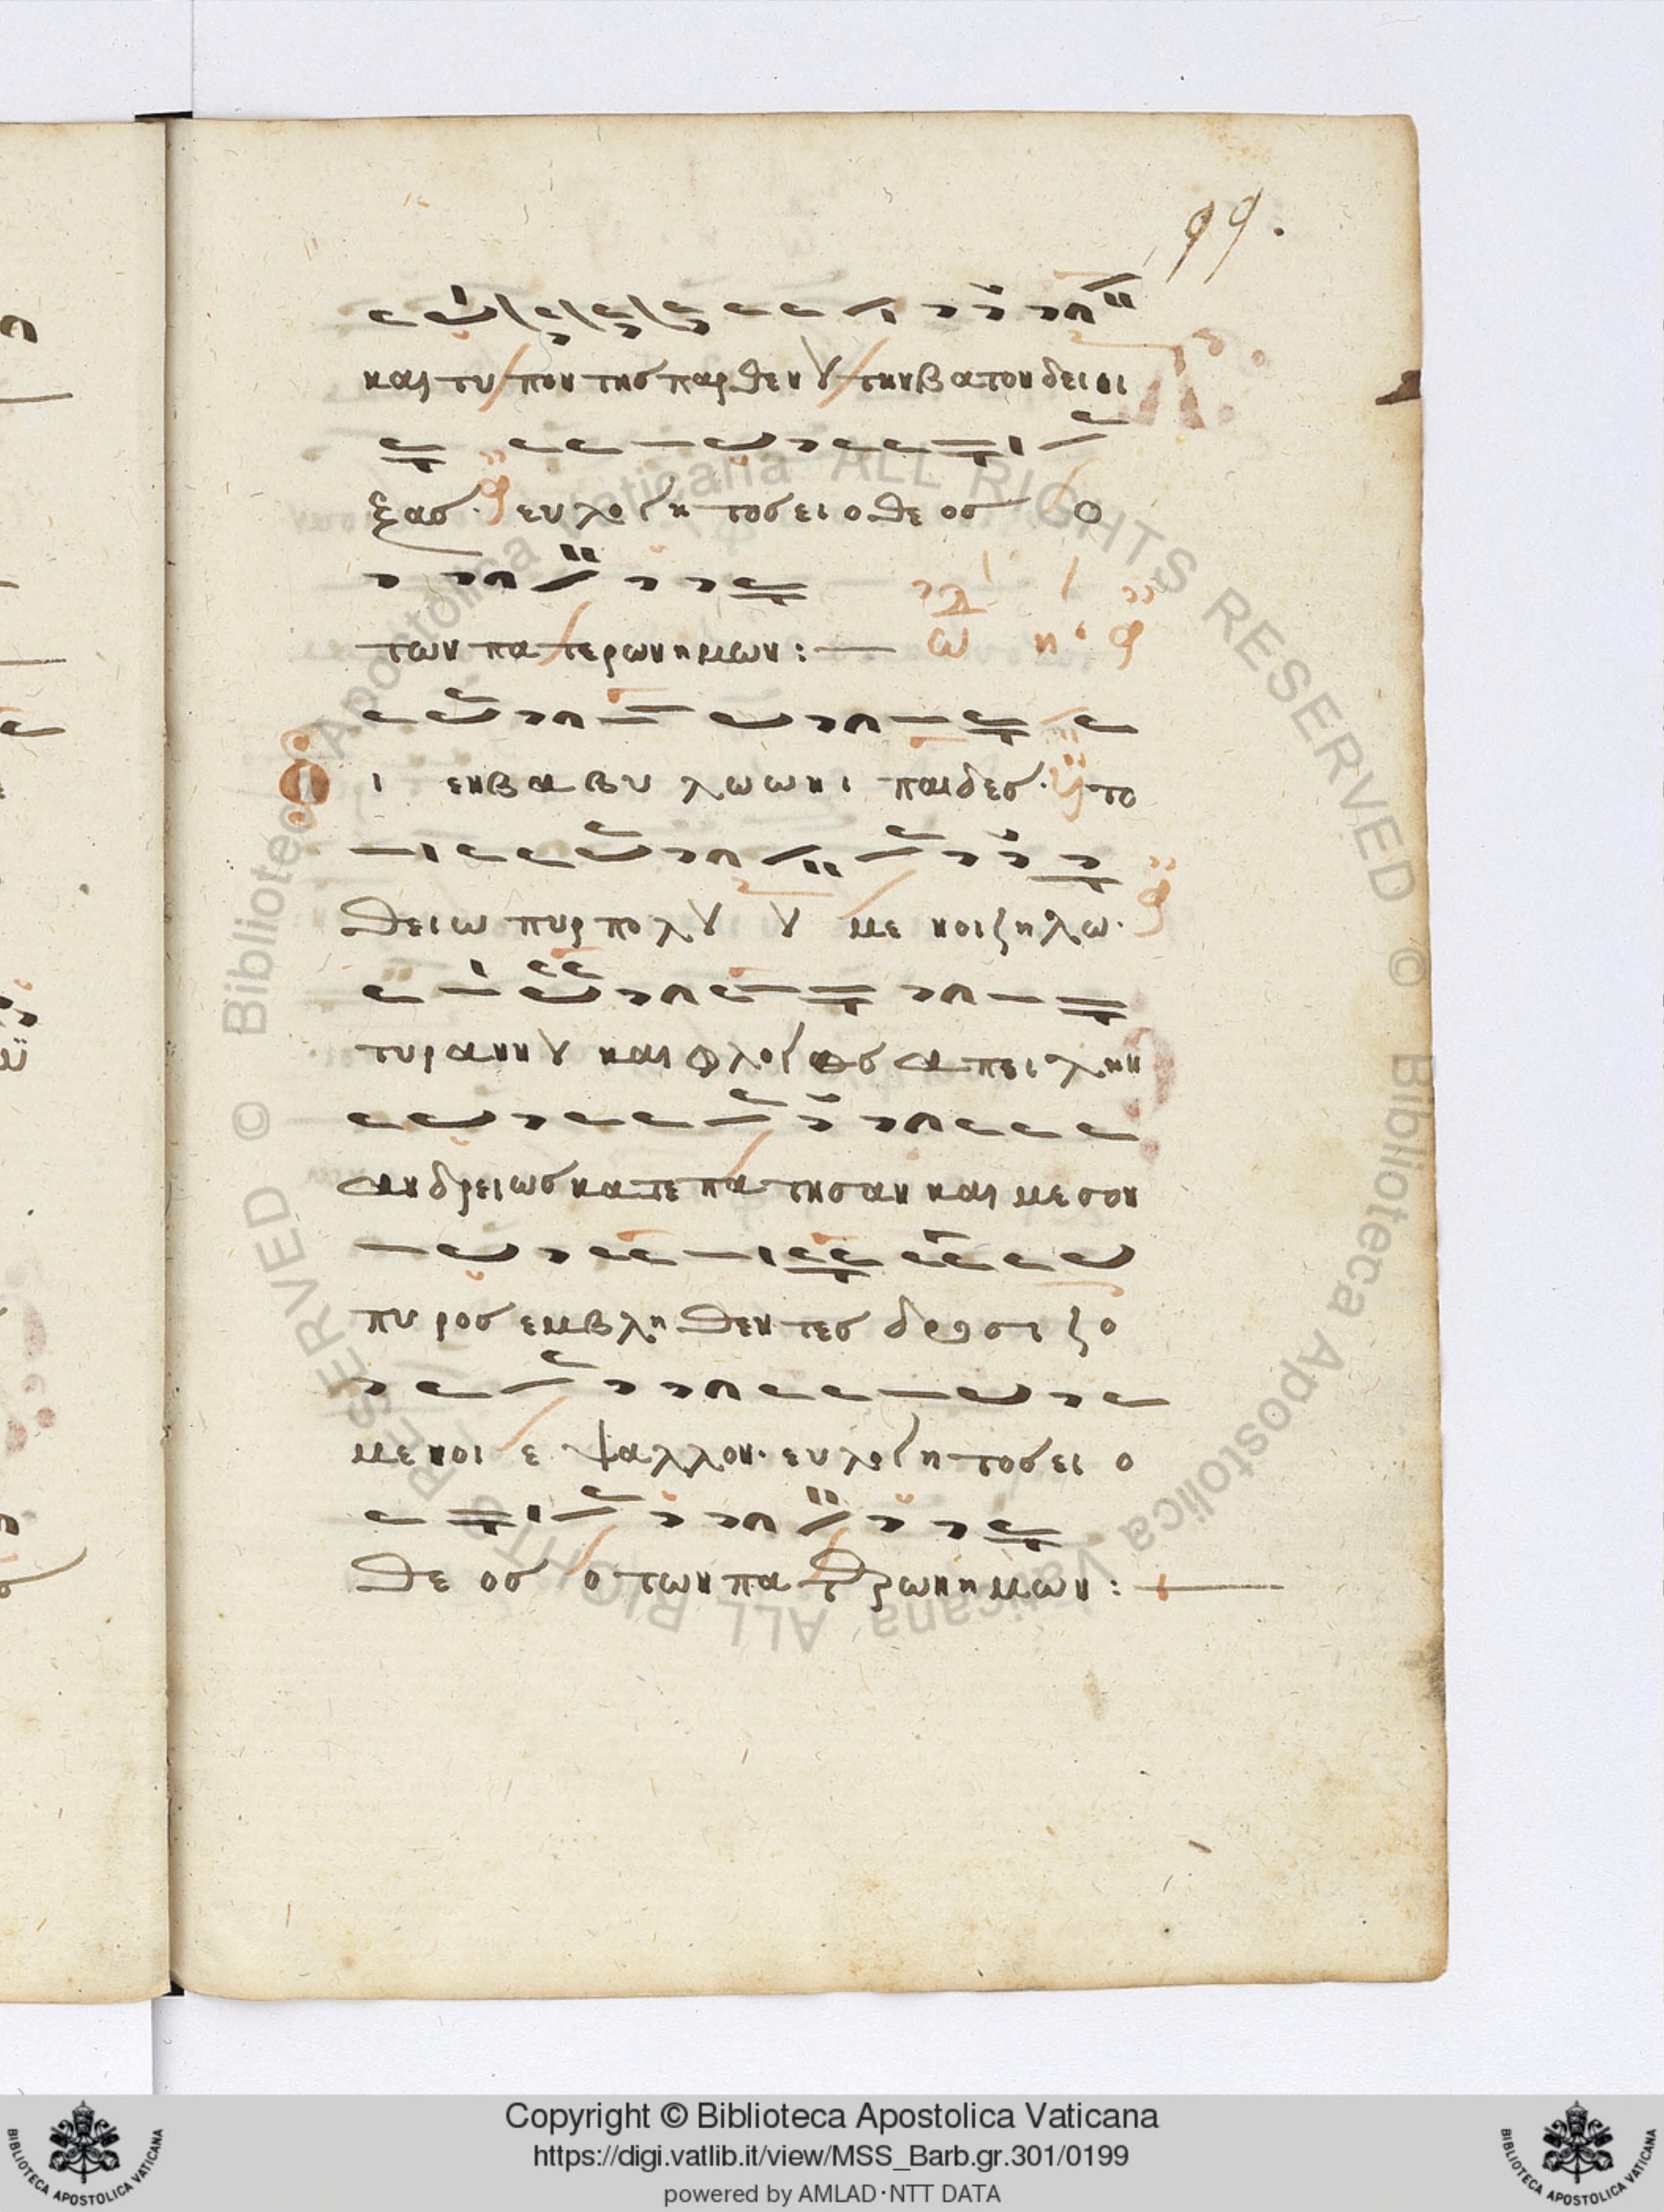 99.
και τυπον της παρθενȣ την βατον δειει
ξας· ευλογητος ει ο θεος ο
των πατερων ημων:—
ω η
Οι εν βαβυλωωνι παιδες· τω
θειω πυρπολȣ ȣμενοι ζηλω·
τυραννȣ και φλογος απειλην
ανδρειως κατεπατησαν και μεσον
πυρος εμβληθεντες δροσιζο
μενοι εψαλλον· ευλογητος ει ο
θεος ο των πατερων ημων:—
Copyright © Biblioteca Apostolica Vaticana
https://digi.vatlib.it/view/MSS_Barb.gr.301/0199
powered by AMLAD·NTT DATA
© Biblioteca Apostolica Vaticana ALL RIGHTS RESERVED
© Biblioteca Apostolica Vaticana ALL RIGHTS RESERVED
BIBLIOTECA APOSTOLICA VATICANA
BIBLIOTECA APOSTOLICA VATICANA